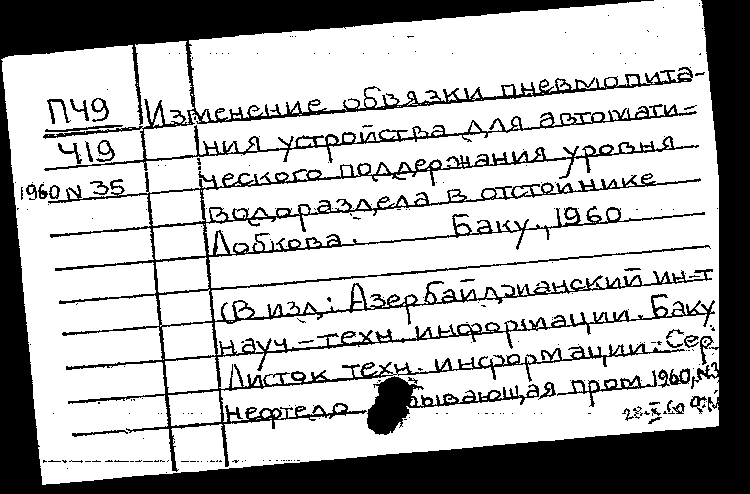 П49 Изменение обвязки пневмопита-
419 ния устройства для автомати-
1960 N 35 ческого поддержания уровня
водораздела в отстойнике
Лобкова. Баку., 1960
(В изд.: Азербайджанский ин-т
науч.-техн. информации. Баку
Листок техн. информации. Сер.
нефтедо бывающая пром 1960, N3
28.X.60